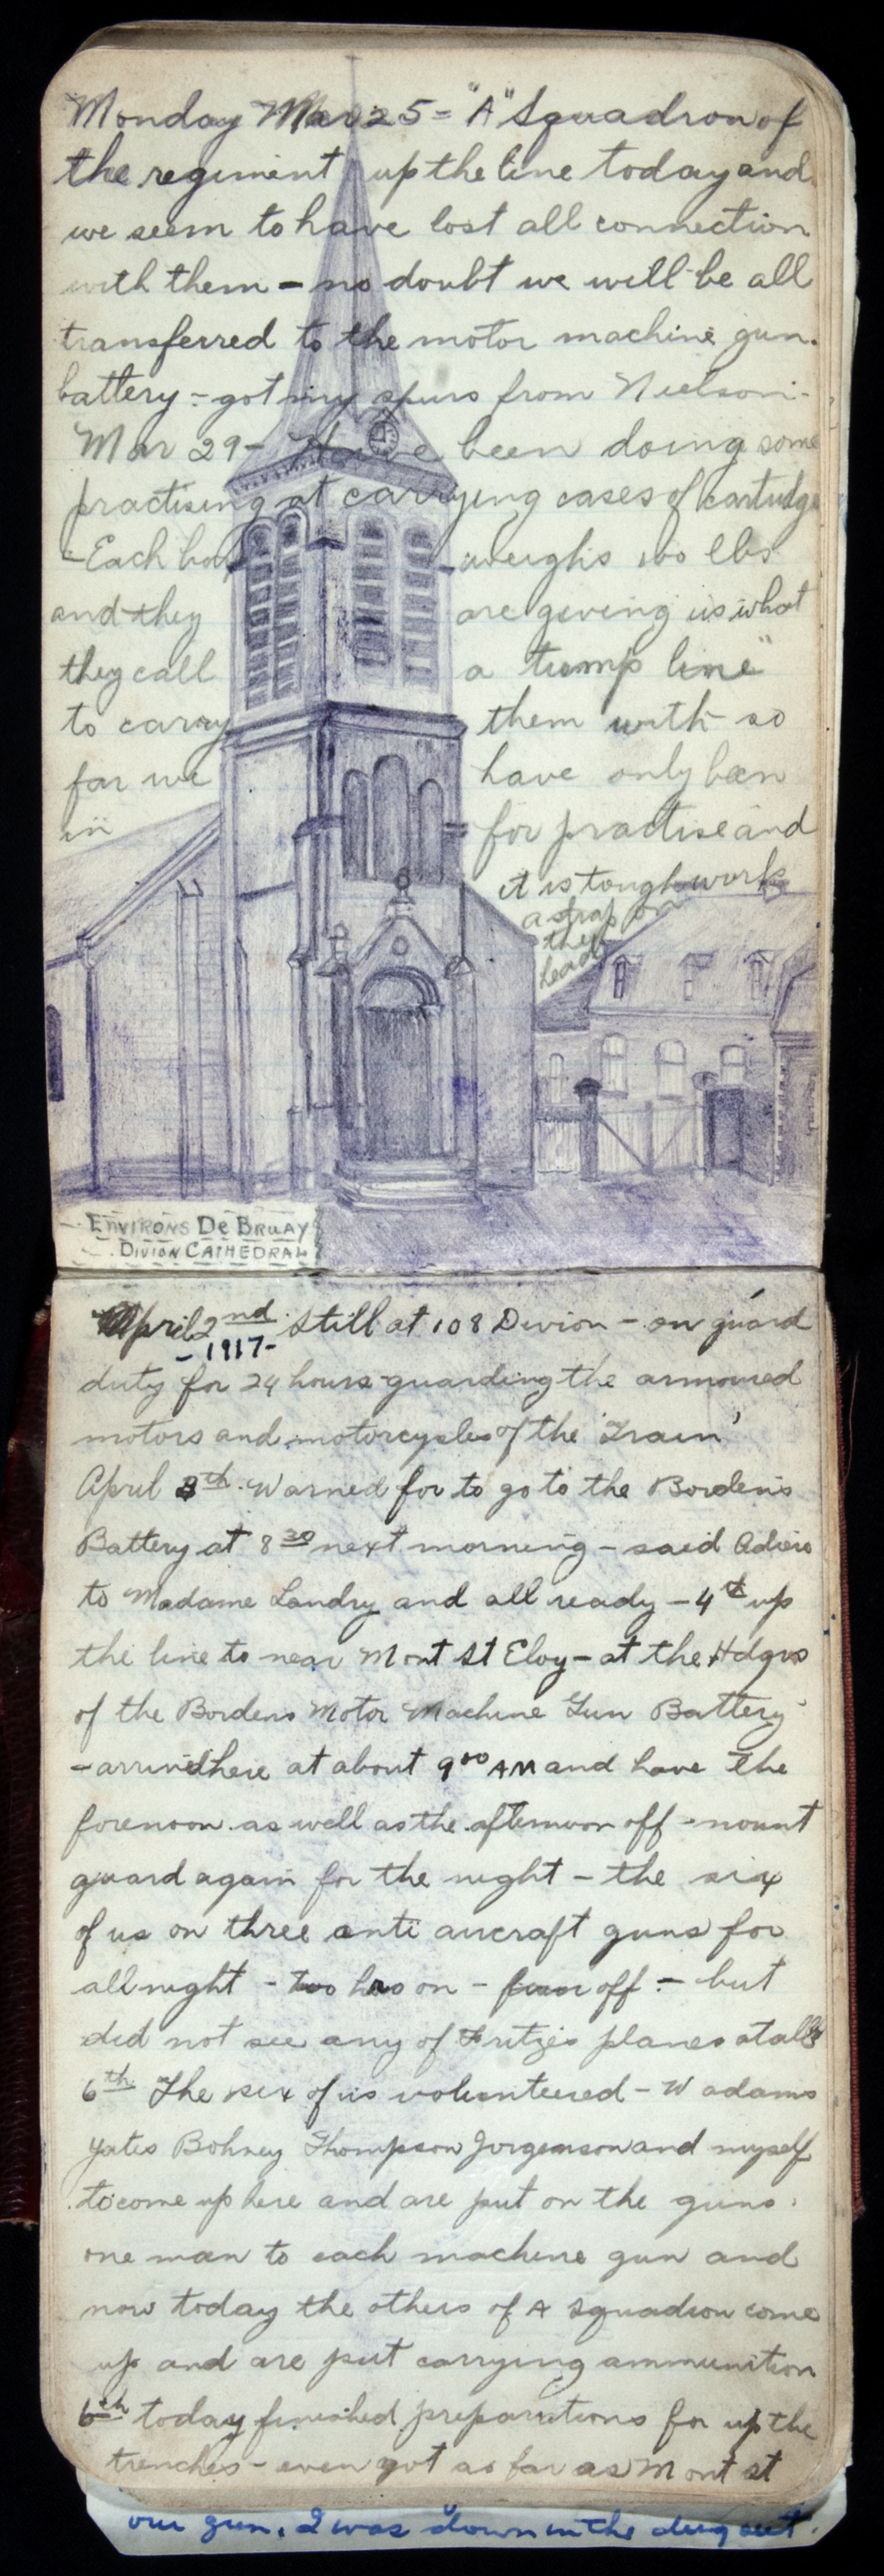 Monday Mar 25 = "A" Squadron of
the regiment up the line today and
we seem to have lost all connection
with them - no doubt we will be all
transferred to the motor machine gun.
battery - got my spurs from Nielson -
Mar 29 - Have been doing some
practising at carrying cases of cartridge
- Each box weighs 100 lbs
and they are giving us what
they call a tump line"
to carry them with so
far we have only been
in for practise and
it is tough work
a strap on
the
head
ENVIRONS DE BRUAY
DIVION CATHEDRAL
April 2nd still at 108 Divion - on guard
- 1917 -
duty for 24 hours guarding the armoured
motors and motorcycles of the 'Train'
April 3th. Warned for to go to the Bordens
Battery at 8 30 next morning - said Adieu
to Madame Landry and all ready - 4th up
the line to near Mont St Eloy - at the Hdqrs
of the Bordens Motor Machine Gun Battery
- arrived here at about 9 00 AM and have the
forenoon as well as the afternoon off - mount
guard again for the night - the six
of us on three anti aircraft guns for
all night - two hrs on - four off - but
did not see any of Fritzes planes at all
6th The six of us volunteered - W adams
Yates Bohney Thompson Jorgenson and myself
to come up here and are put on the guns.
one man to each machine gun and
now today the others of A Squadron come
up and are put carrying ammunition
6th today finished preparations for up the
trenches - even got as far as Mont St
our gun. I was down in the dug out.